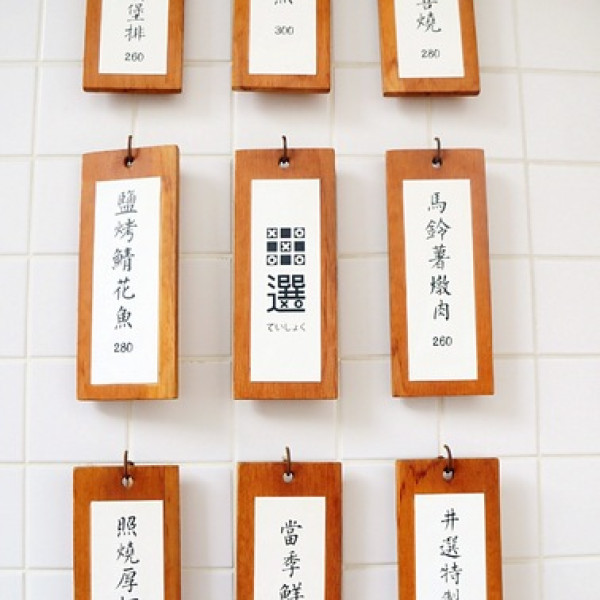 堡排
260
300
燒
280
鹽烤鯖花魚
280
選
ていしょく
馬鈴薯燉肉
260
照燒厚
當季鮮
井選特製